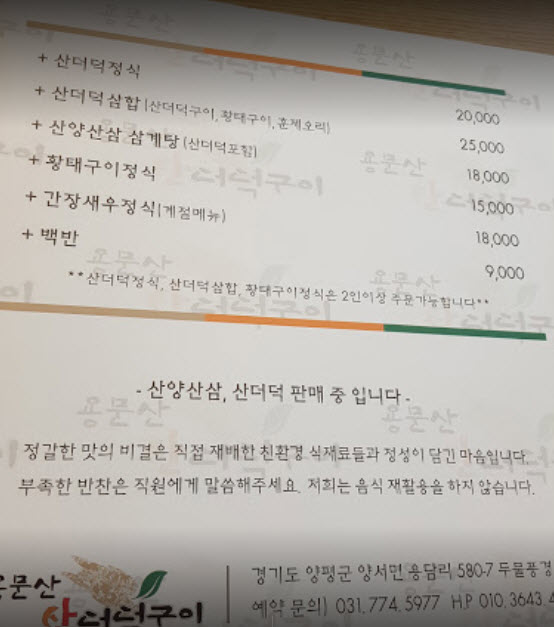 + 산더덕정식 20,000
+ 산더덕삼합 (산더덕구이, 황태구이, 훈제오리) 25,000
+ 산양산삼 삼계탕 (산더덕포함) 18,000
+ 황태구이정식 15,000
+ 간장새우정식(계절메뉴) 18,000
+ 백반 9,000
**산더덕정식, 산더덕삼합, 황태구이정식은 2인이상 주문가능합니다**
- 산양산삼, 산더덕 판매 중 입니다 -
정갈한 맛의 비결은 직접 재배한 친환경 식재료들과 정성이 담긴 마음입니다.
부족한 반찬은 직원에게 말씀해주세요. 저희는 음식 재활용을 하지 않습니다.
용문산
산더덕구이
경기도 양평군 양서면 용담리 580-7 두물풍경
예약 문의) 031. 774. 5977 H.P 010. 3643.